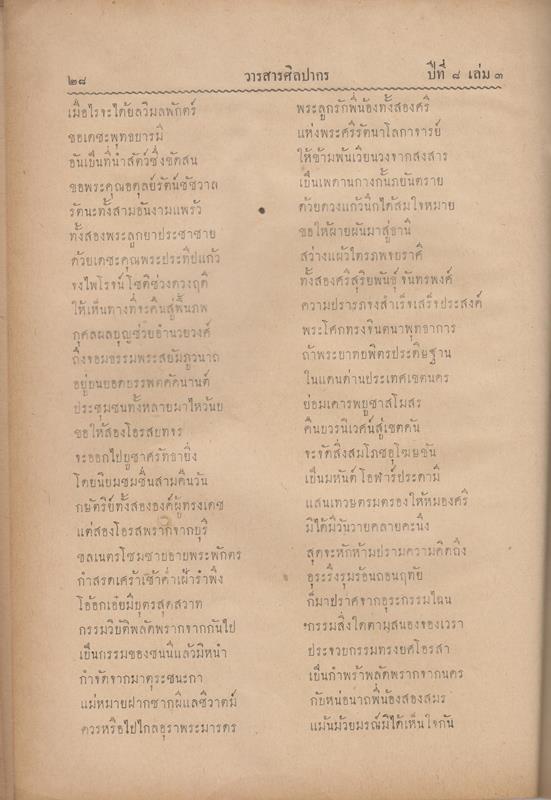 ๒๘ วารสารศิลปากร ปีที่ ๘ เล่ม ๓
เมื่อไรจะได้ยลวิมลพักตร์ พระลูกรักพี่น้องทั้งสองศรี
ขอเดชะพุทธบารมี แห่งพระศรีรัตนาโลกาจารย์
อันเป็นที่นำสัตว์ซึ่งขัดสน ให้ข้ามพ้นเวียนวงจากสงสาร
ขอพระคุณอดุลย์รัตน์ชัชวาล เป็นเพดานกางกั้นภยันตราย
รัตนะทั้งสามอันงามแพร้ว ด้วยดวงแก้วนึกได้สมใจหมาย
ทั้งสองพระลูกยาประชาชาย ขอให้ผายผันมาสู่ธานี
ด้วยเดชะคุณพระประทีปแก้ว สว่างแผ้วไตรภพจบราศี
จงไพโรจน์โชติช่วงดวงฤดี ทั้งสองศรีสุริยพันธุ์จันทรพงศ์
ให้เห็นทางที่จะคืนสู่พื้นภพ ความปรารภจงสำเร็จเสร็จประสงค์
กุศลผลบุญช่วยอำนวยวงศ์ พระโศกทรงจินตนาพุทธาการ
ถึงจอมธรรมพระสยัมภูวนาถ ถ้าพระบาทพิตรประดิษฐาน
อยู่บนยอดบรรพตคัคนานต์ ในแดนด่านประเทศเขตนคร
ประชุมชนทั้งหลายมาไหว้นบ ย่อมเคารพบูชาสโมสร
ขอให้สองโอรสบทจร คืนบวรนิเวศน์สู่เขตคัน
จะออกไปบูชาศรัทธายิ่ง จะจัดสิ่งสมโภชอุโฆษขัน
โดยนิยมชมชื่นสามคืนวัน เป็นมหันต์โอฬาร์ประดามี
กษัตริย์ทั้งสององค์ผู้ทรงเดช แสนเทวษตรมตรองให้หมองศรี
แต่สองโอรสพรากจากบุรี มิได้มีวันวายคลายคะนึง
ชลเนตรโซมซายอายพระพักตร สุดจะหักห้ามปรามความคิดถึง
กำสรดเศร้าเช้าค่ำเฝ้ารำพึง อุระรึงรุมร้อนถอนฤทัย
โอ้อกเอ๋ยมีบุตรสุดสวาท ก็มาปราศจากอุระกรรมไฉน
กรรมวิบัติพลัดพรากจากกันไป กรรมสิ่งใดตามสนองจองเวรา
เป็นกรรมของชนนีแล้วมิหนำ ประจวบกรรมทรงยศโอรสา
กำจัดจากมาตุระชนะกา เป็นกำพร้าพลัดพรากจากนคร
แม่หมายฝากซากผีแลชีวาตม์ กับหน่อนาถพี่น้องสองสมร
ควรหรือไปไกลอุราพระมารดร แม้นม้วยมรณ์มิได้เห็นใจกัน